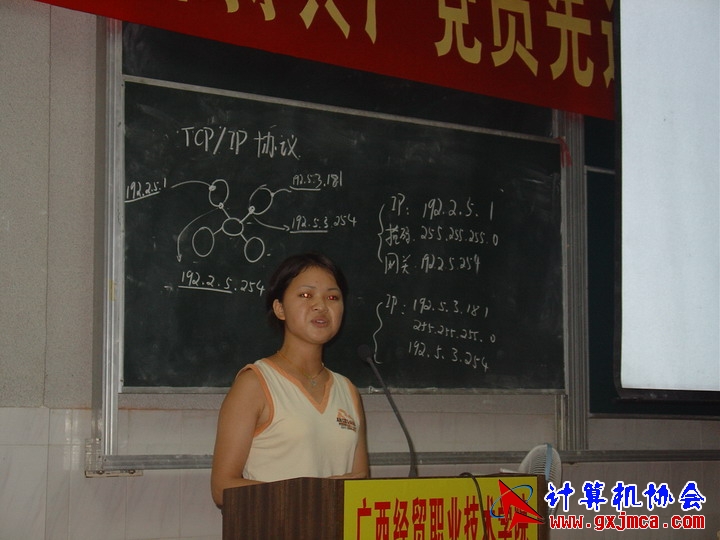 共产党员先
TCP/IP 协议
192.2.5.1
192.5.3.181
192.5.3.254
192.2.5.254
IP: 192.2.5.1
掩码: 255.255.255.0
网关: 192.5.254
IP: 192.5.3.181
255.255.255.0
192.5.3.254
广西经贸职业技术学院
计算机协会
www.gxjmca.com